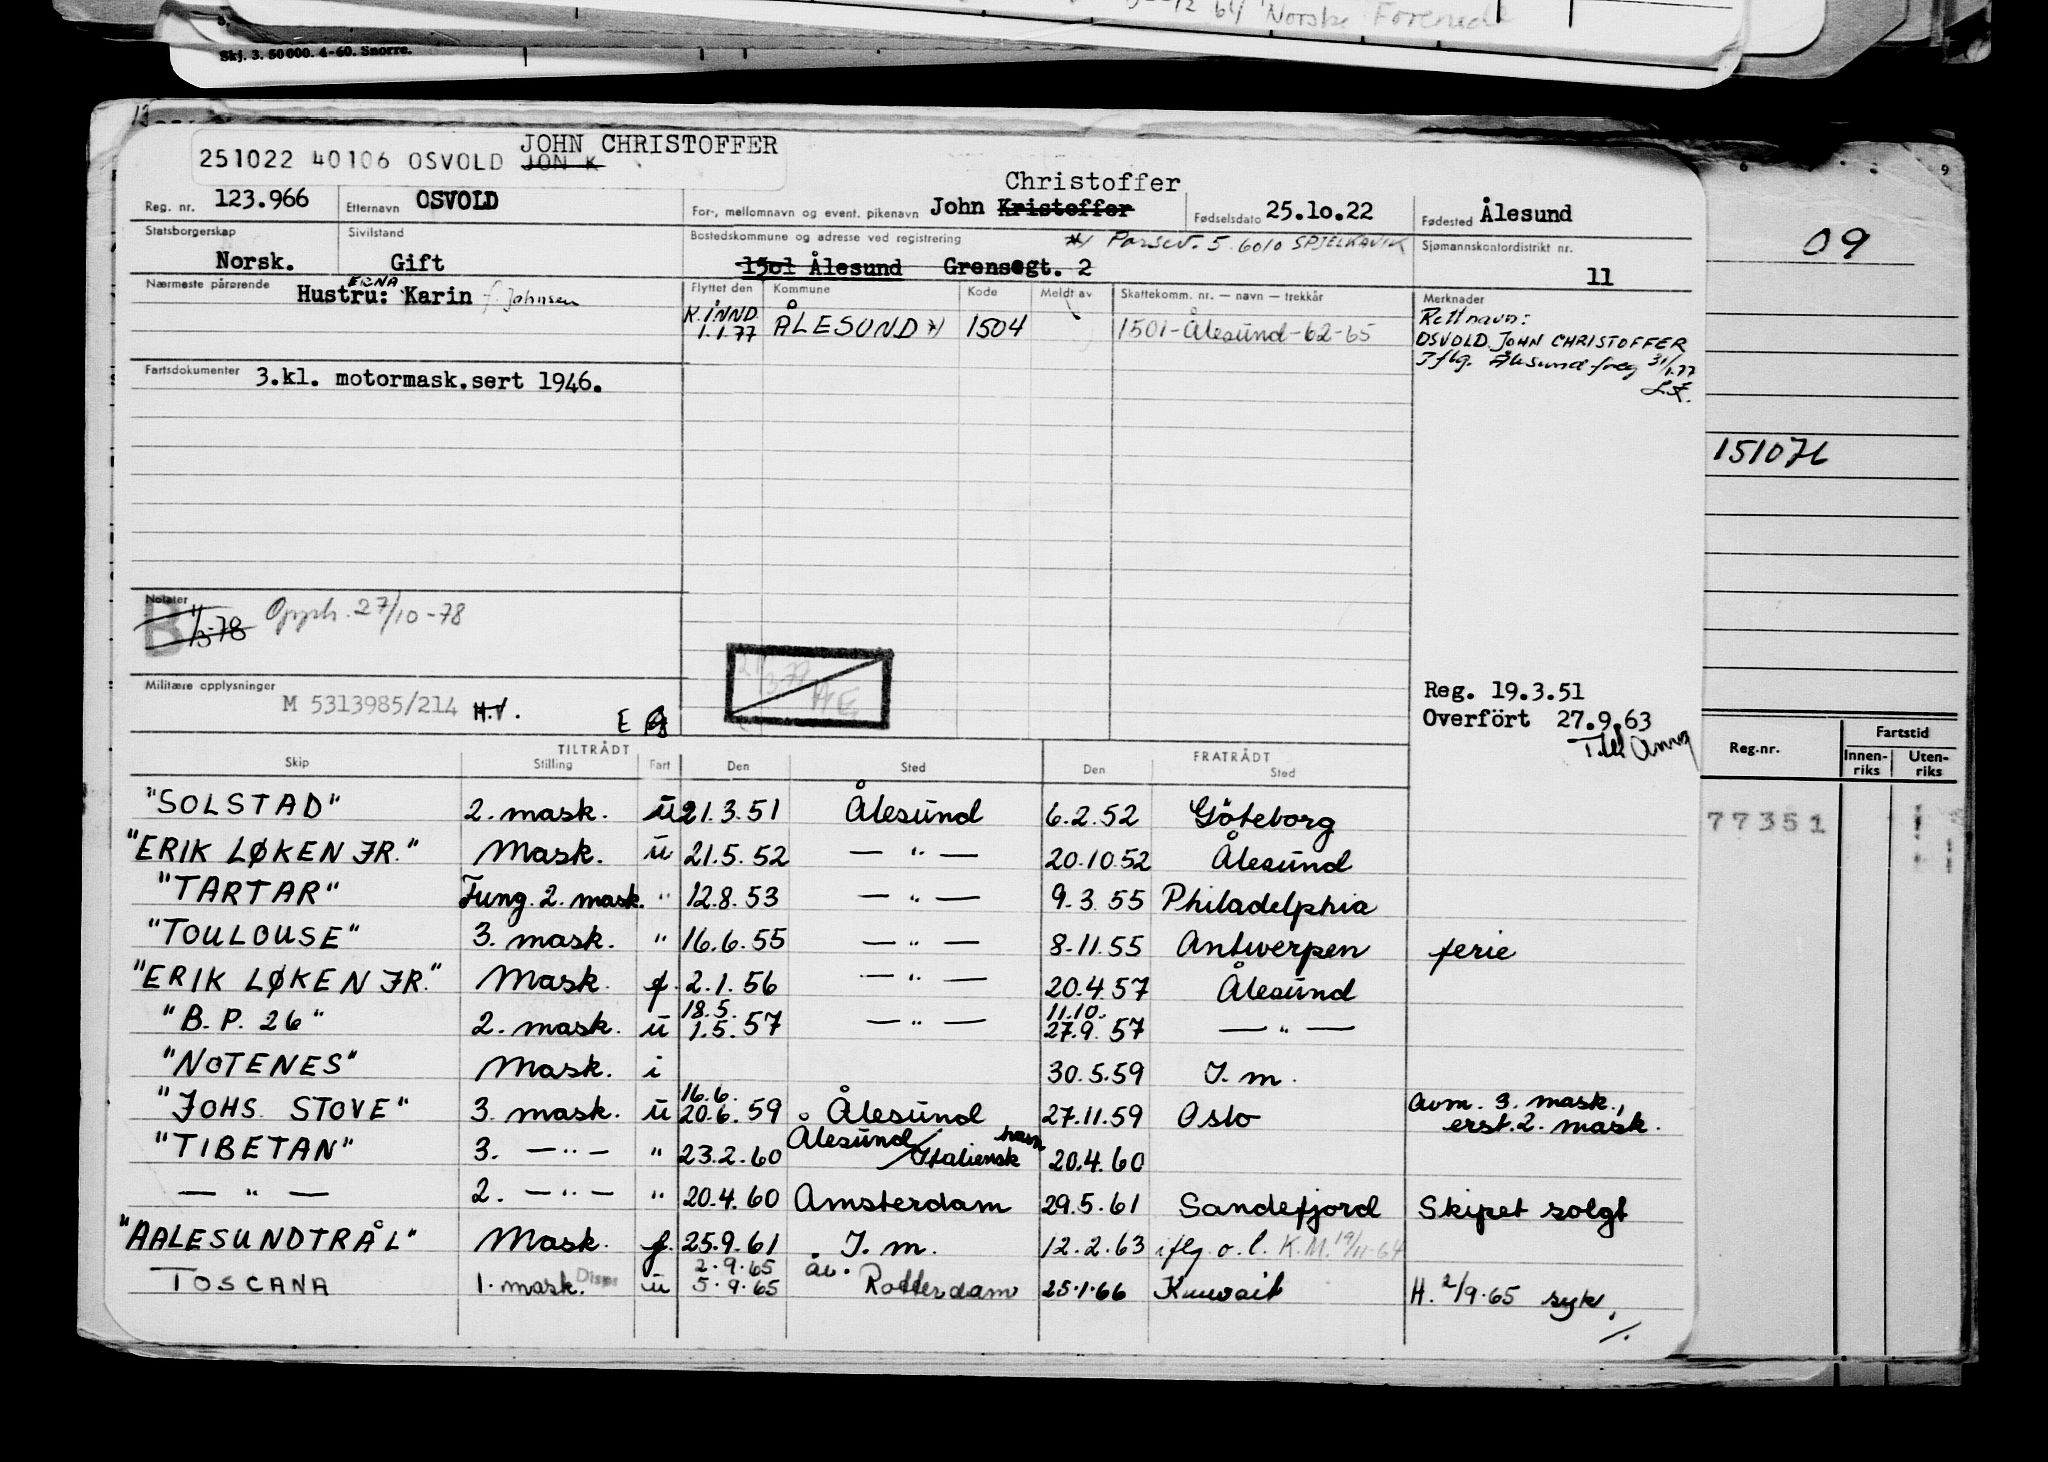 Norske Forened
Skj. 3. 50 000. 4-60. Snorre.
JOHN CHRISTOFFER
251022 40106 OSVOLD JON K
Christoffer
Reg. nr. 123.966 Etternavn OSVOLD For-, mellomnavn og event. pikenavn John Kristoffer Fødselsdato 25.10.22 Fødested Ålesund
Statsborgerskap Sivilstand Bostedskommune og adresse ved registrering 5 6010 SPJELKAVIK Sjømannskontordistrikt nr.
Norsk. Gift 1501 Ålesund Grensegt. 2 11
09
Nærmeste pårørende ERNA
Hustru: Karin f. Johnsen
Flyttet den Kommune Kode Meldt av Skattekomm. nr. — navn — trekkår Merknader
K.INND. 1.1.77 ÅLESUND *) 1504 1501-Ålesund-62-65
Rett navn:
OSVOLD JOHN CHRISTOFFER
Iflg. Ålesund freg 31/1.77
Fartsdokumenter 3.kl. motormask.sert 1946.
151076
Notater
B
27/10-78
Militære opplysninger
M 5313985/214 H.V. E
Reg. 19.3.51
Overført 27.9.63
Reg.nr. Fartstid
Innen-riks Uten-riks
77351
TILTRÅDT FRATRÅDT
Skip Stilling Fart Den Sted Den Sted
"SOLSTAD" 2. mask. u 21.3.51 Ålesund 6.2.52 Göteborg
"ERIK LØKEN JR." Mask. u 21.5.52 — " — 20.10.52 Ålesund
"TARTAR" Fung. 2. mask. " 12.8.53 — " — 9.3.55 Philadelphia
"TOULOUSE" 3. mask. " 16.6.55 — " — 8.11.55 Antwerpen ferie
"ERIK LØKEN JR." Mask. f. 2.1.56 — " — 20.4.57 Ålesund
18.5. 11.10.
"B. P. 26" 2. mask. u 1.5.57 — " — 27.9.57 — " —
"NOTENES" Mask. i 30.5.59 I. m.
16.6.
"JOHS. STOVE" 3. mask. u 20.6.59 Ålesund 27.11.59 Oslo avm. 3. mask., erst. 2. mask.
"TIBETAN" 3. — " — " 23.2.60 Ålesund/Italiensk havn 20.4.60
— " — 2. — " — " 20.4.60 Amsterdam 29.5.61 Sandefjord Skipet solgt
"AALESUNDTRÅL" Mask. f. 25.9.61 I. m. 12.2.63 iflg. o. l. K.M. 19/11-64
2.9.65
TOSCANA 1. mask. Disp u 5.9.65 Rotterdam 25.1.66 Kuwait H. 2/9.65 syk.
./.